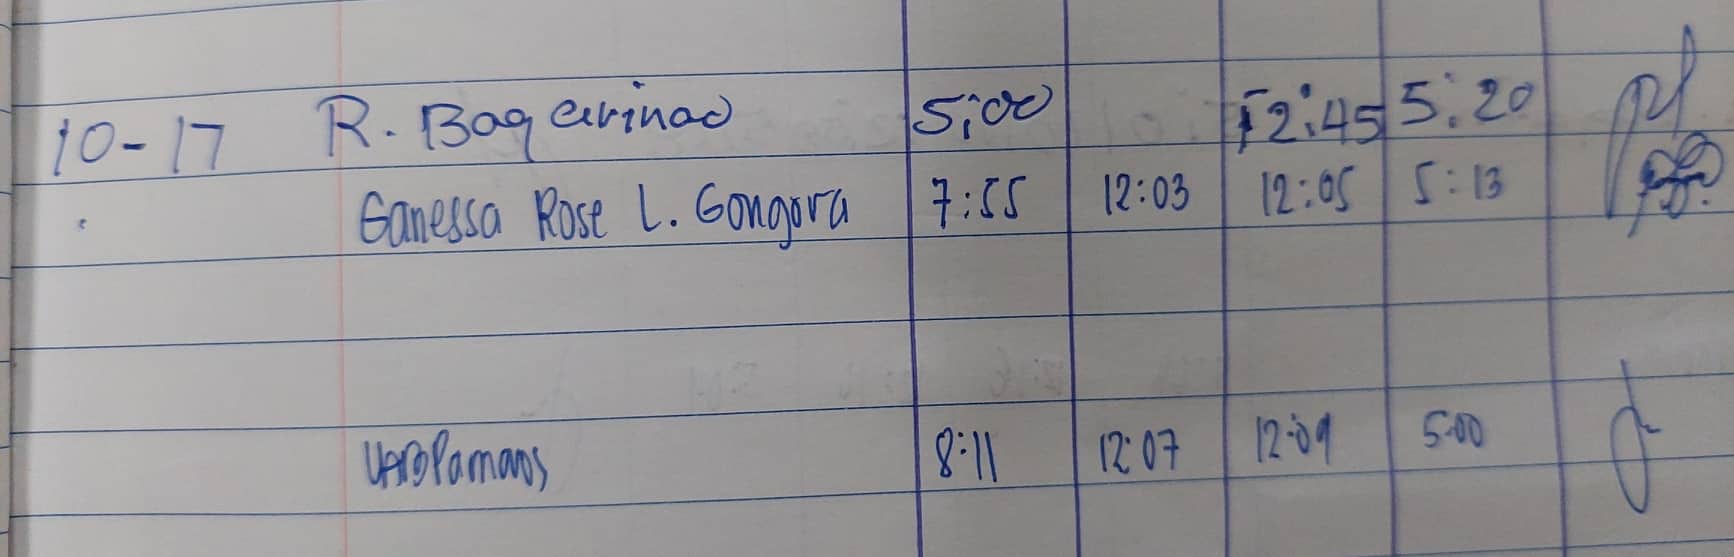 10-17 R. Bagarinao 5:00 12:45 5:20
Ganessa Rose L. Gongora 7:55 12:03 12:05 5:13
8:11 12:07 12:09 5:00